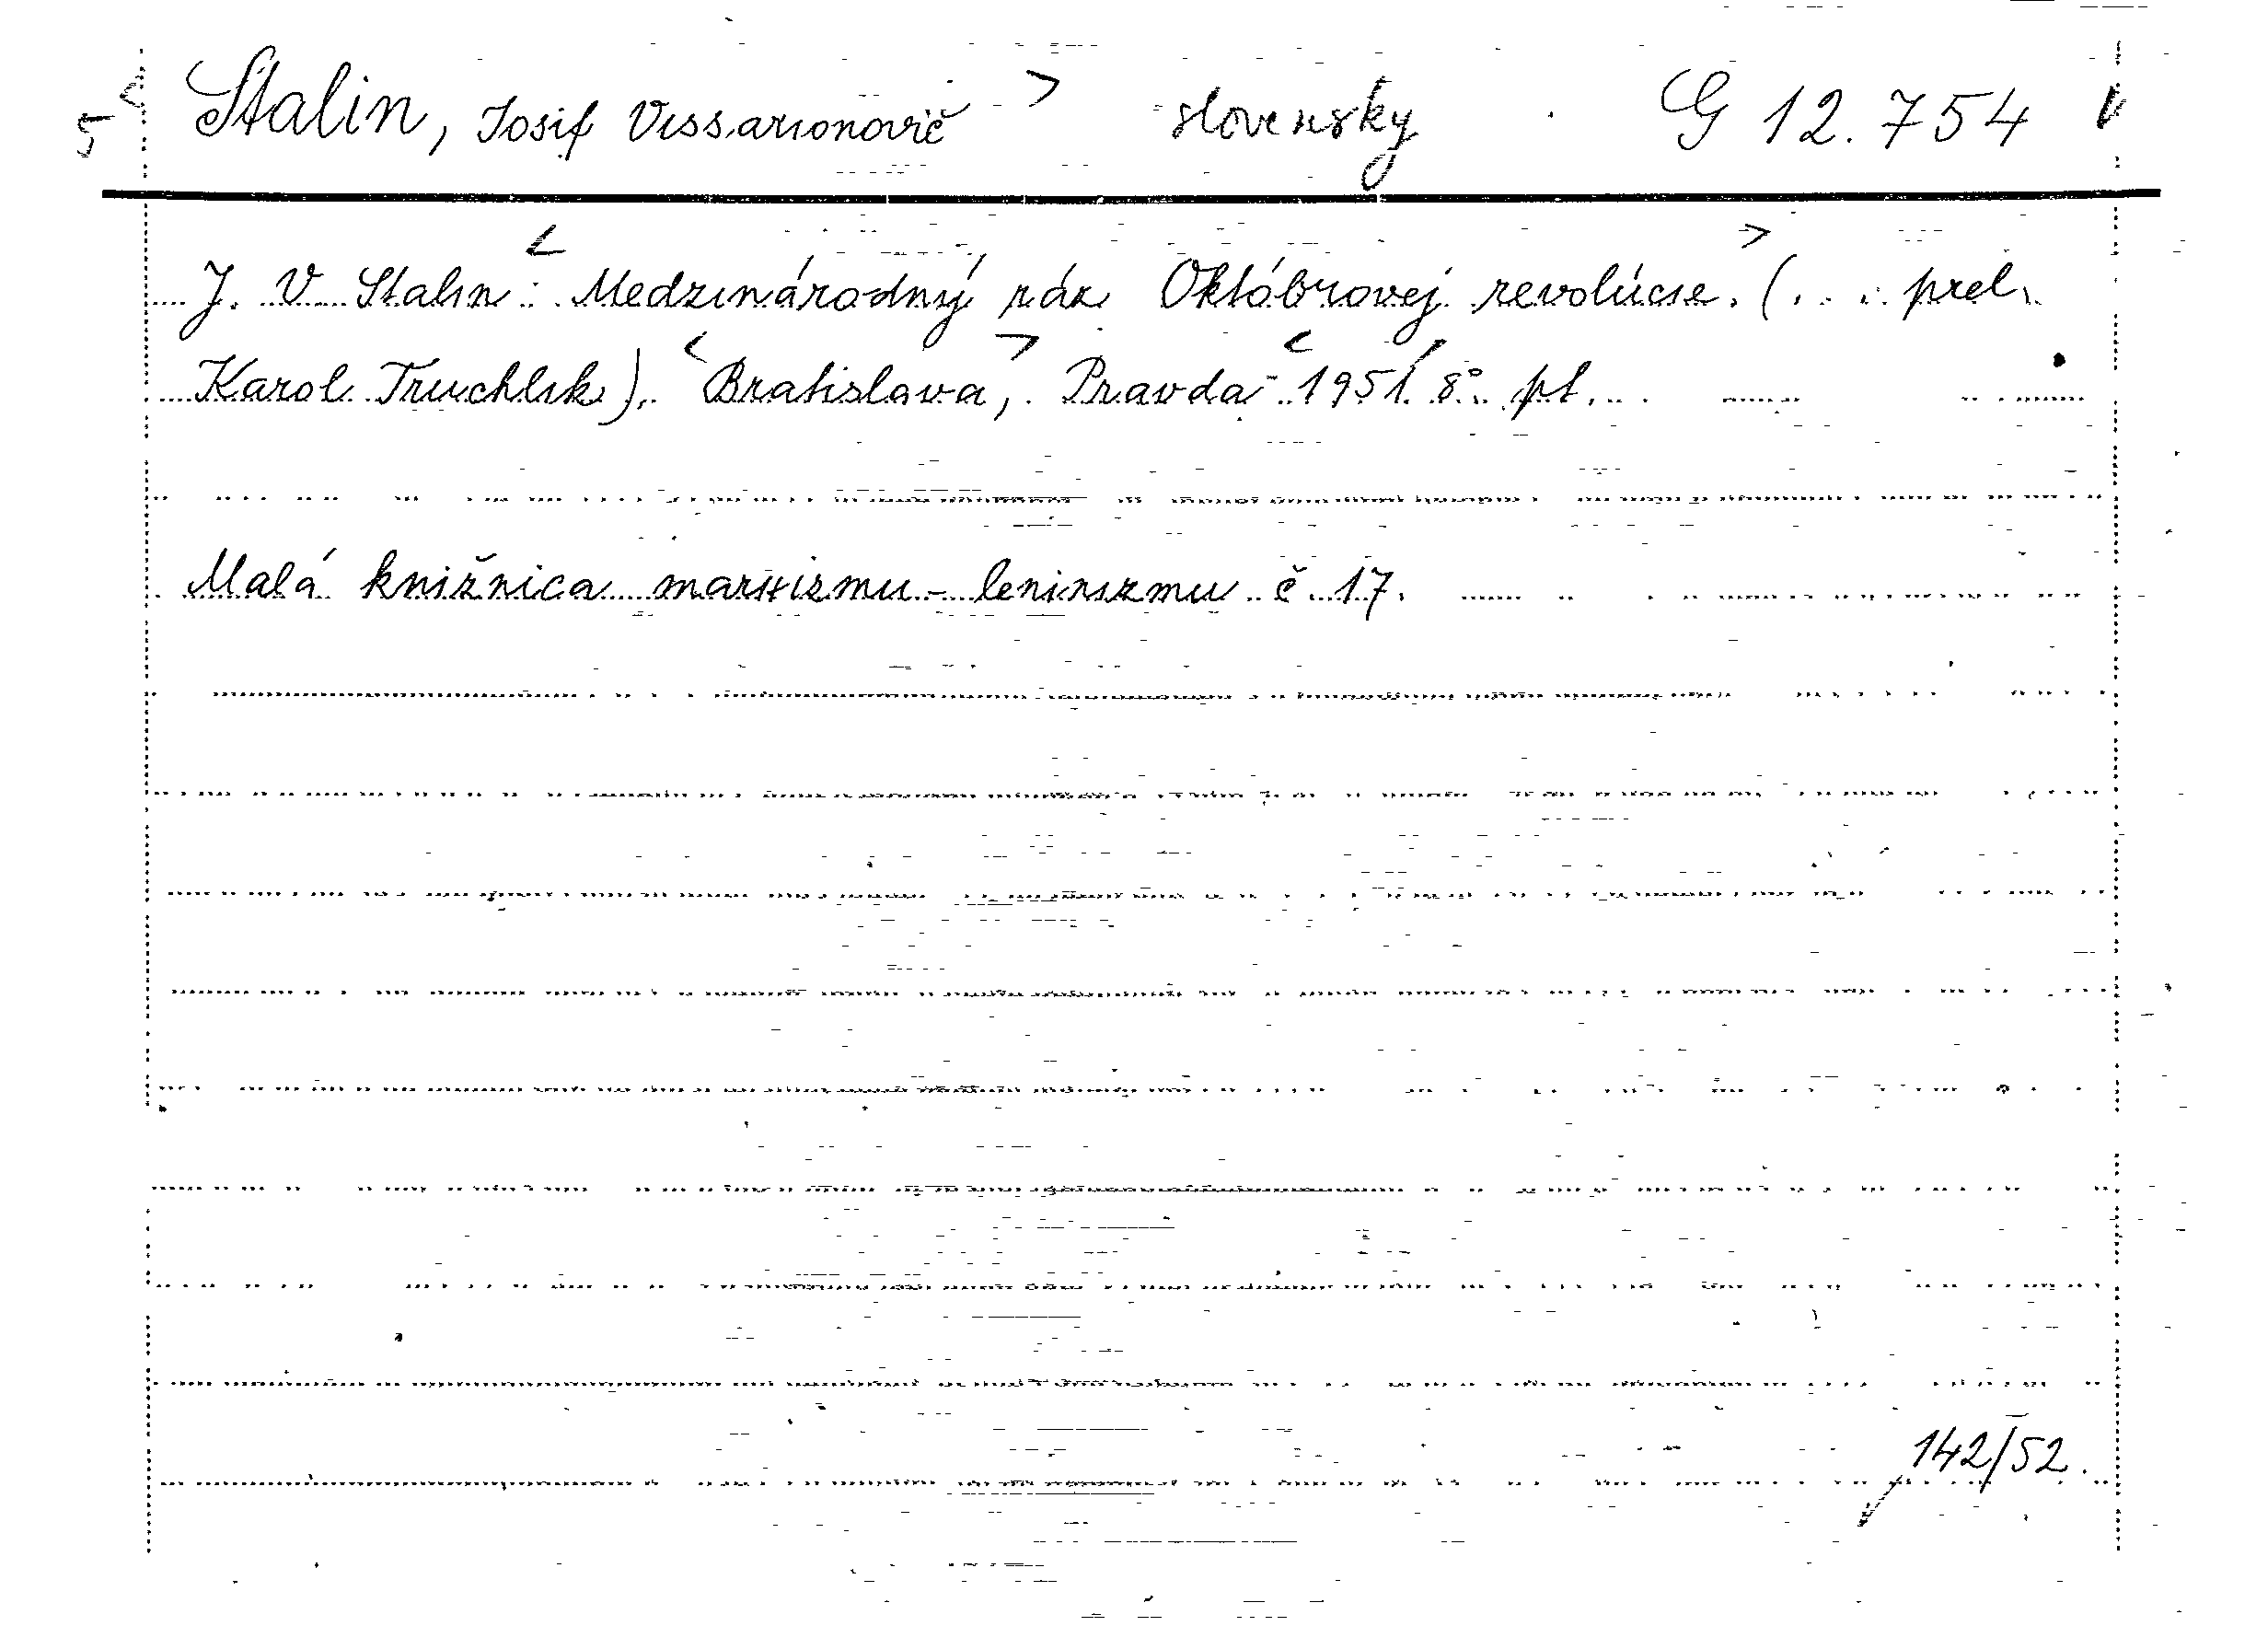 5 < Stalin, Josif Vissarionovič > slovensky G 12.754
J. V. Stalin: < Medzinárodný ráz Októbrovej revolúcie. > (... prel.
Karol Truchlik). < Bratislava, > Pravda < 1951. 8° pl.
Malá knižnica marxizmu-leninizmu č. 17.
142/52.